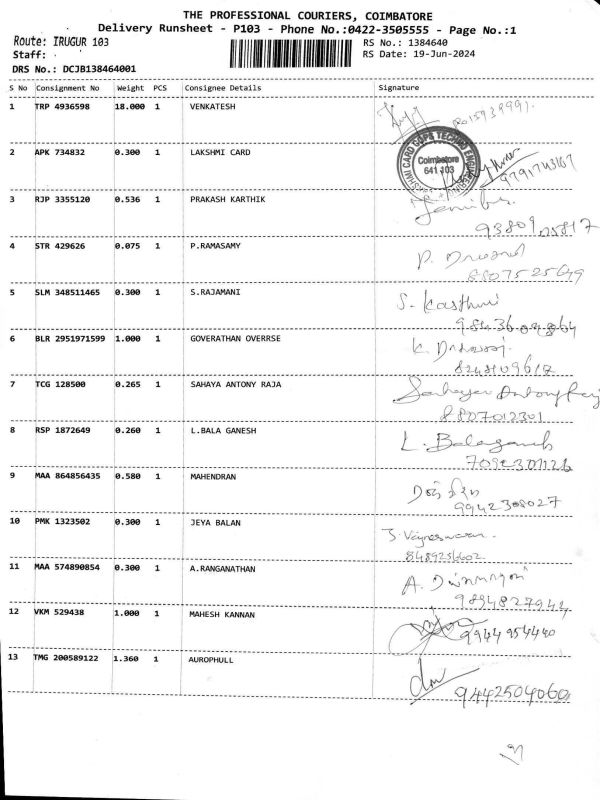 THE PROFESSIONAL COURIERS, COIMBATORE
Delivery Runsheet - P103 - Phone No.:0422-3505555 - Page No.:1
Route: IRUGUR 103
RS No.: 1384640
Staff: .
RS Date: 19-Jun-2024
DRS No.: DCJB138464001
S No Consignment No Weight PCS Consignee Details Signature
1 TRP 4936598 18.000 1 VENKATESH
2 APK 734832 0.300 1 LAKSHMI CARD
Coimbatore
641 103
3 RJP 3355120 0.536 1 PRAKASH KARTHIK
4 STR 429626 0.075 1 P.RAMASAMY P.
5 SLM 348511465 0.300 1 S.RAJAMANI S. Kasthuri
6 BLR 2951971599 1.000 1 GOVERATHAN OVERRSE K.
7 TCG 128500 0.265 1 SAHAYA ANTONY RAJA Sahaya Antony Raj
8807012301
8 RSP 1872649 0.260 1 L.BALA GANESH L. Balaganesh
9 MAA 864856435 0.580 1 MAHENDRAN
9942308027
10 PMK 1323502 0.300 1 JEYA BALAN
8489256602
11 MAA 574890854 0.300 1 A.RANGANATHAN A.
9894827944
12 VKM 529438 1.000 1 MAHESH KANNAN
9944954440
13 TMG 200589122 1.360 1 AUROPHULL
9442504060